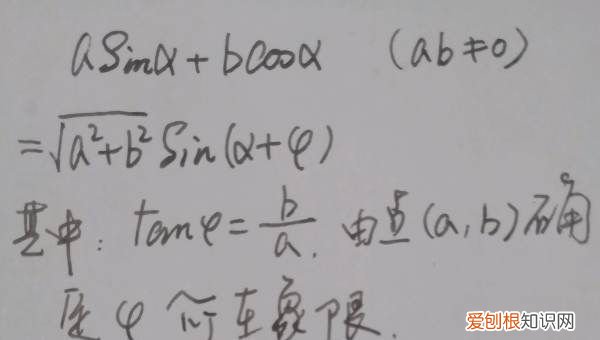 asinα+bcosα (ab≠0)
=√(a²+b²) Sin(α+φ)
其中: tanφ=b/a. 由点(a,b)确
定φ所在象限.
爱刨根知识网